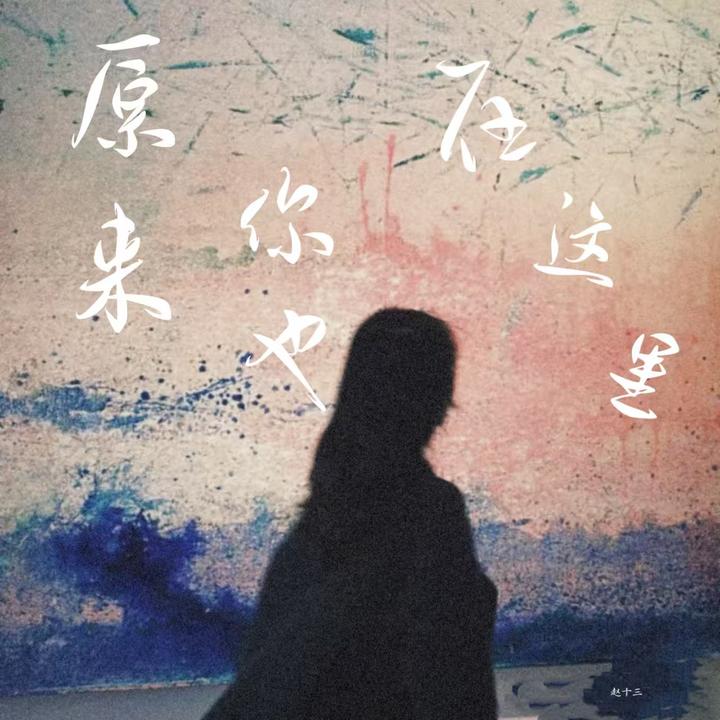 原来
你也
在这里
赵十三